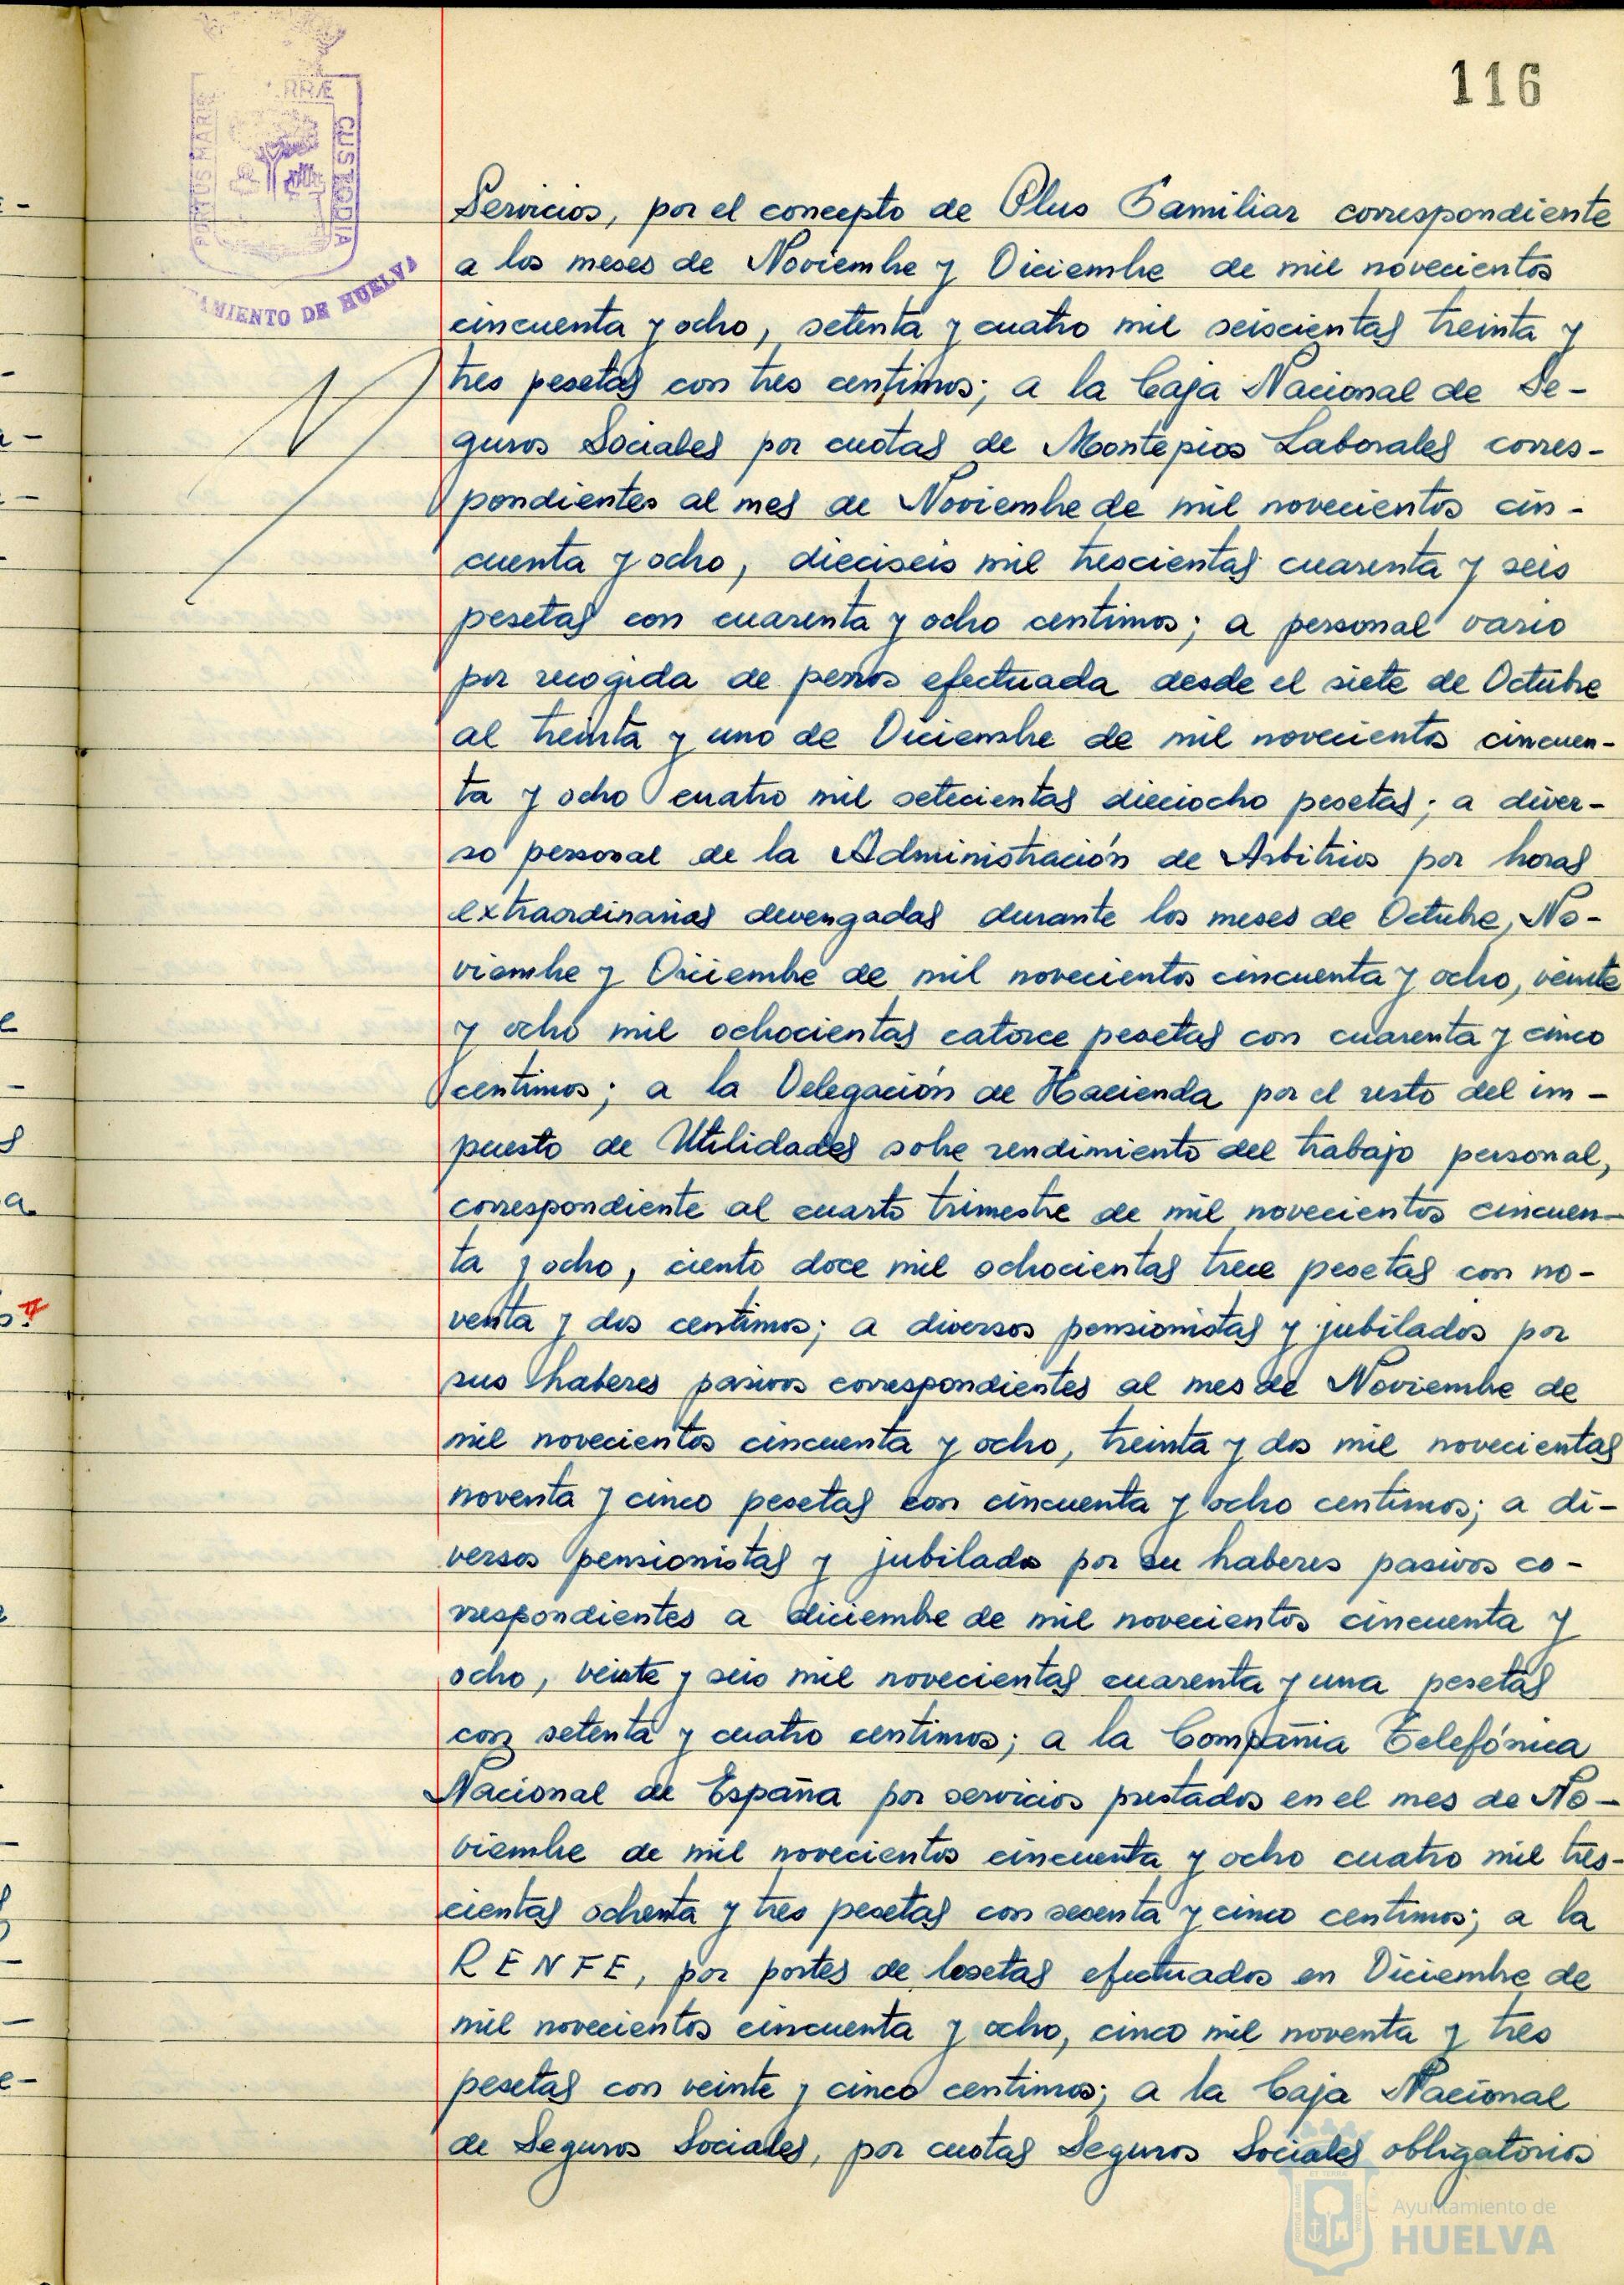 116
PORTUS MARIS
CUSTODIA
AMIENTO DE HUELVA
Servicios, por el concepto de Plus Familiar correspondiente
a los meses de Noviembre y Diciembre de mil novecientos
cincuenta y ocho, setenta y cuatro mil seiscientas treinta y
tres pesetas con tres centimos; a la Caja Nacional de Se-
guros Sociales por cuotas de Montepios Laborales corres-
pondientes al mes de Noviembre de mil novecientos cin-
cuenta y ocho, dieciseis mil trescientas cuarenta y seis
pesetas con cuarenta y ocho centimos; a personal vario
por recogida de perros efectuada desde el siete de Octubre
al treinta y uno de Diciembre de mil novecientos cincuen-
ta y ocho cuatro mil setecientas dieciocho pesetas; a diver-
so personal de la Administración de Arbitrios por horas
extraordinarias devengadas durante los meses de Octubre, No-
viembre y Diciembre de mil novecientos cincuenta y ocho, veinte
y ocho mil ochocientas catorce pesetas con cuarenta y cinco
centimos; a la Delegación de Hacienda por el resto del im-
puesto de Utilidades sobre rendimiento del trabajo personal,
correspondiente al cuarto trimestre de mil novecientos cincuen-
ta y ocho, ciento doce mil ochocientas trece pesetas con no-
venta y dos centimos; a diversos pensionistas y jubilados por
sus haberes pasivos correspondientes al mes de Noviembre de
mil novecientos cincuenta y ocho, treinta y dos mil novecientas
noventa y cinco pesetas con cincuenta y ocho centimos; a di-
versos pensionistas y jubilados por su haberes pasivos co-
rrespondientes a diciembre de mil novecientos cincuenta y
ocho, veinte y seis mil novecientas cuarenta y una pesetas
con setenta y cuatro centimos; a la Compañia Telefónica
Nacional de España por servicios prestados en el mes de No-
viembre de mil novecientos cincuenta y ocho cuatro mil tres-
cientas ochenta y tres pesetas con sesenta y cinco centimos; a la
RENFE, por portes de losetas efectuados en Diciembre de
mil novecientos cincuenta y ocho, cinco mil noventa y tres
pesetas con veinte y cinco centimos; a la Caja Nacional
de Seguros Sociales, por cuotas Seguros Sociales obligatorios
Ayuntamiento de
HUELVA